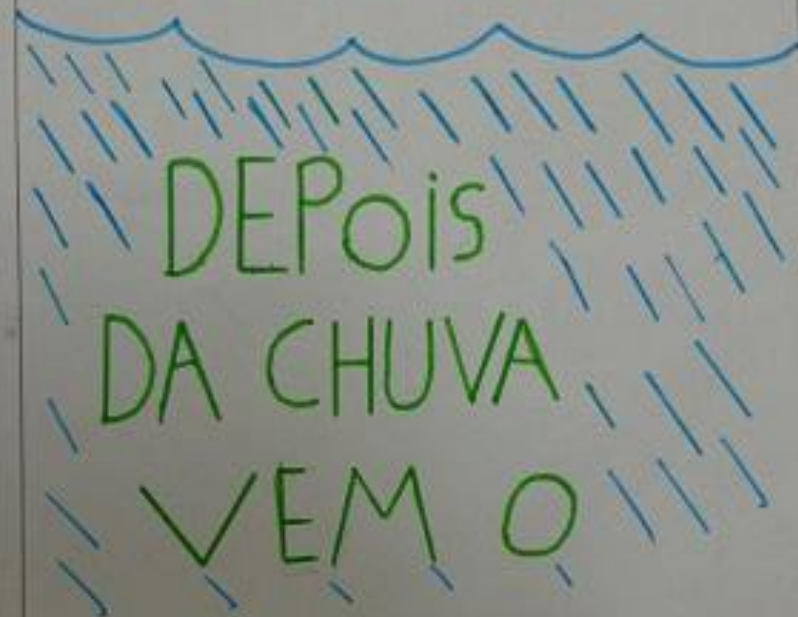 DEPOiS
DA CHUVA
VEM O